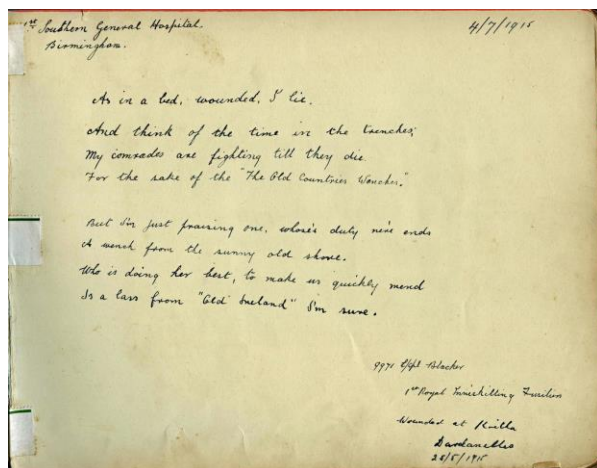 1st Southern General Hospital.
Birmingham.
4/7/1915
As in a bed, wounded, I lie,
And think of the time in the trenches;
My comrades are fighting till they die
For the sake of the "The Old Countries Wenches."
But I'm just praising one, whose's duty ne're ends
A wench from the sunny old shore.
Who is doing her best, to make us quickly mend
Is a lass from "Old Ireland" I'm sure.
9971 L/Cpl Blacker
1st Royal Inniskilling Fusiliers
Wounded at Krithia
Dardanelles
/5/1915